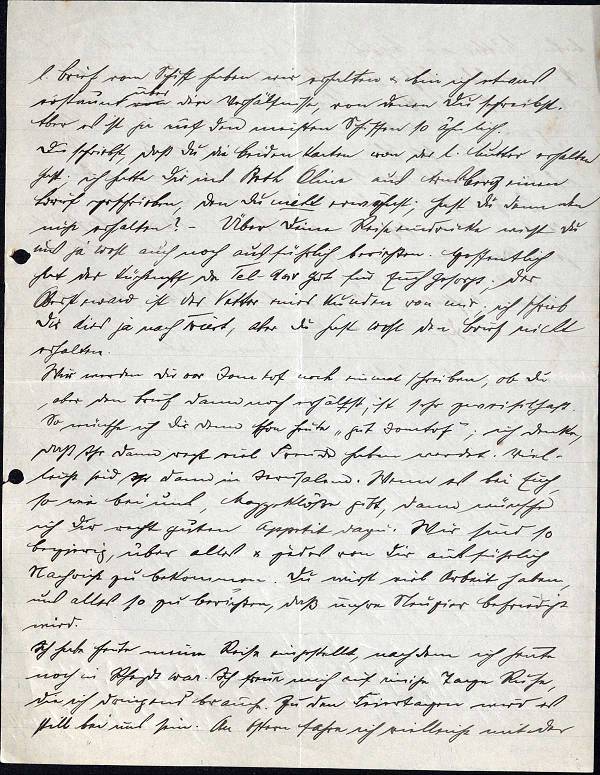 l. Brief vom Schiff haben wir erhalten & bin ich etwas
erstaunt über den Verhältnisse, von denen Du schreibst.
Aber es ist ja auf den meisten Schiffen so ähnlich.
Du schriebst, daß Du die beiden Karten von der l. Mutter erhalten
hast; ich hatte Dir mit Beth Olim aus einen
Brief geschrieben, den Du nicht erwähnst; hast Du denn den
nicht erhalten? – Über Deine Reiseeindrücke wirst Du
uns ja wohl auch noch ausführlich berichten. Hoffentlich
hat der Küchenchef der Tel-Aviv gut für Euch gesorgt. Der
ist der Vetter eines Kunden von mir. ich schrieb
Dir dies ja nach Triest, aber Du hast wohl den Brief nicht
erhalten.
Wir werden Dir vor Jomtof noch einmal schreiben, ob Du
aber den Brief dann noch erhältst, ist sehr zweifelhaft.
So möchte ich Dir denn schon heute "gut Jomtof"; ich denke,
daß Ihr dann recht viel Freude haben werdet. Viel-
leicht seid Ihr dann in Jerusalem. Wenn es bei Euch,
so wie bei uns, Mazzeklöße gibt, dann wünsche
ich Dir recht guten Appetit dazu. Wir sind so
begierig, über alles & jedes von Dir ausführlich
Nachricht zu bekommen. Du wirst viel Arbeit haben,
uns alles so zu berichten, daß unsre Neugier befriedigt
wird.
Ich habe heute meine Reise eingestellt, nachdem ich heute
noch in Rheydt war. Ich freue mich auf einige Tage Ruhe,
die ich dringend brauche. Zu den Feiertagen wird es
still bei uns sein. An Ostern fahre ich vielleicht mit der